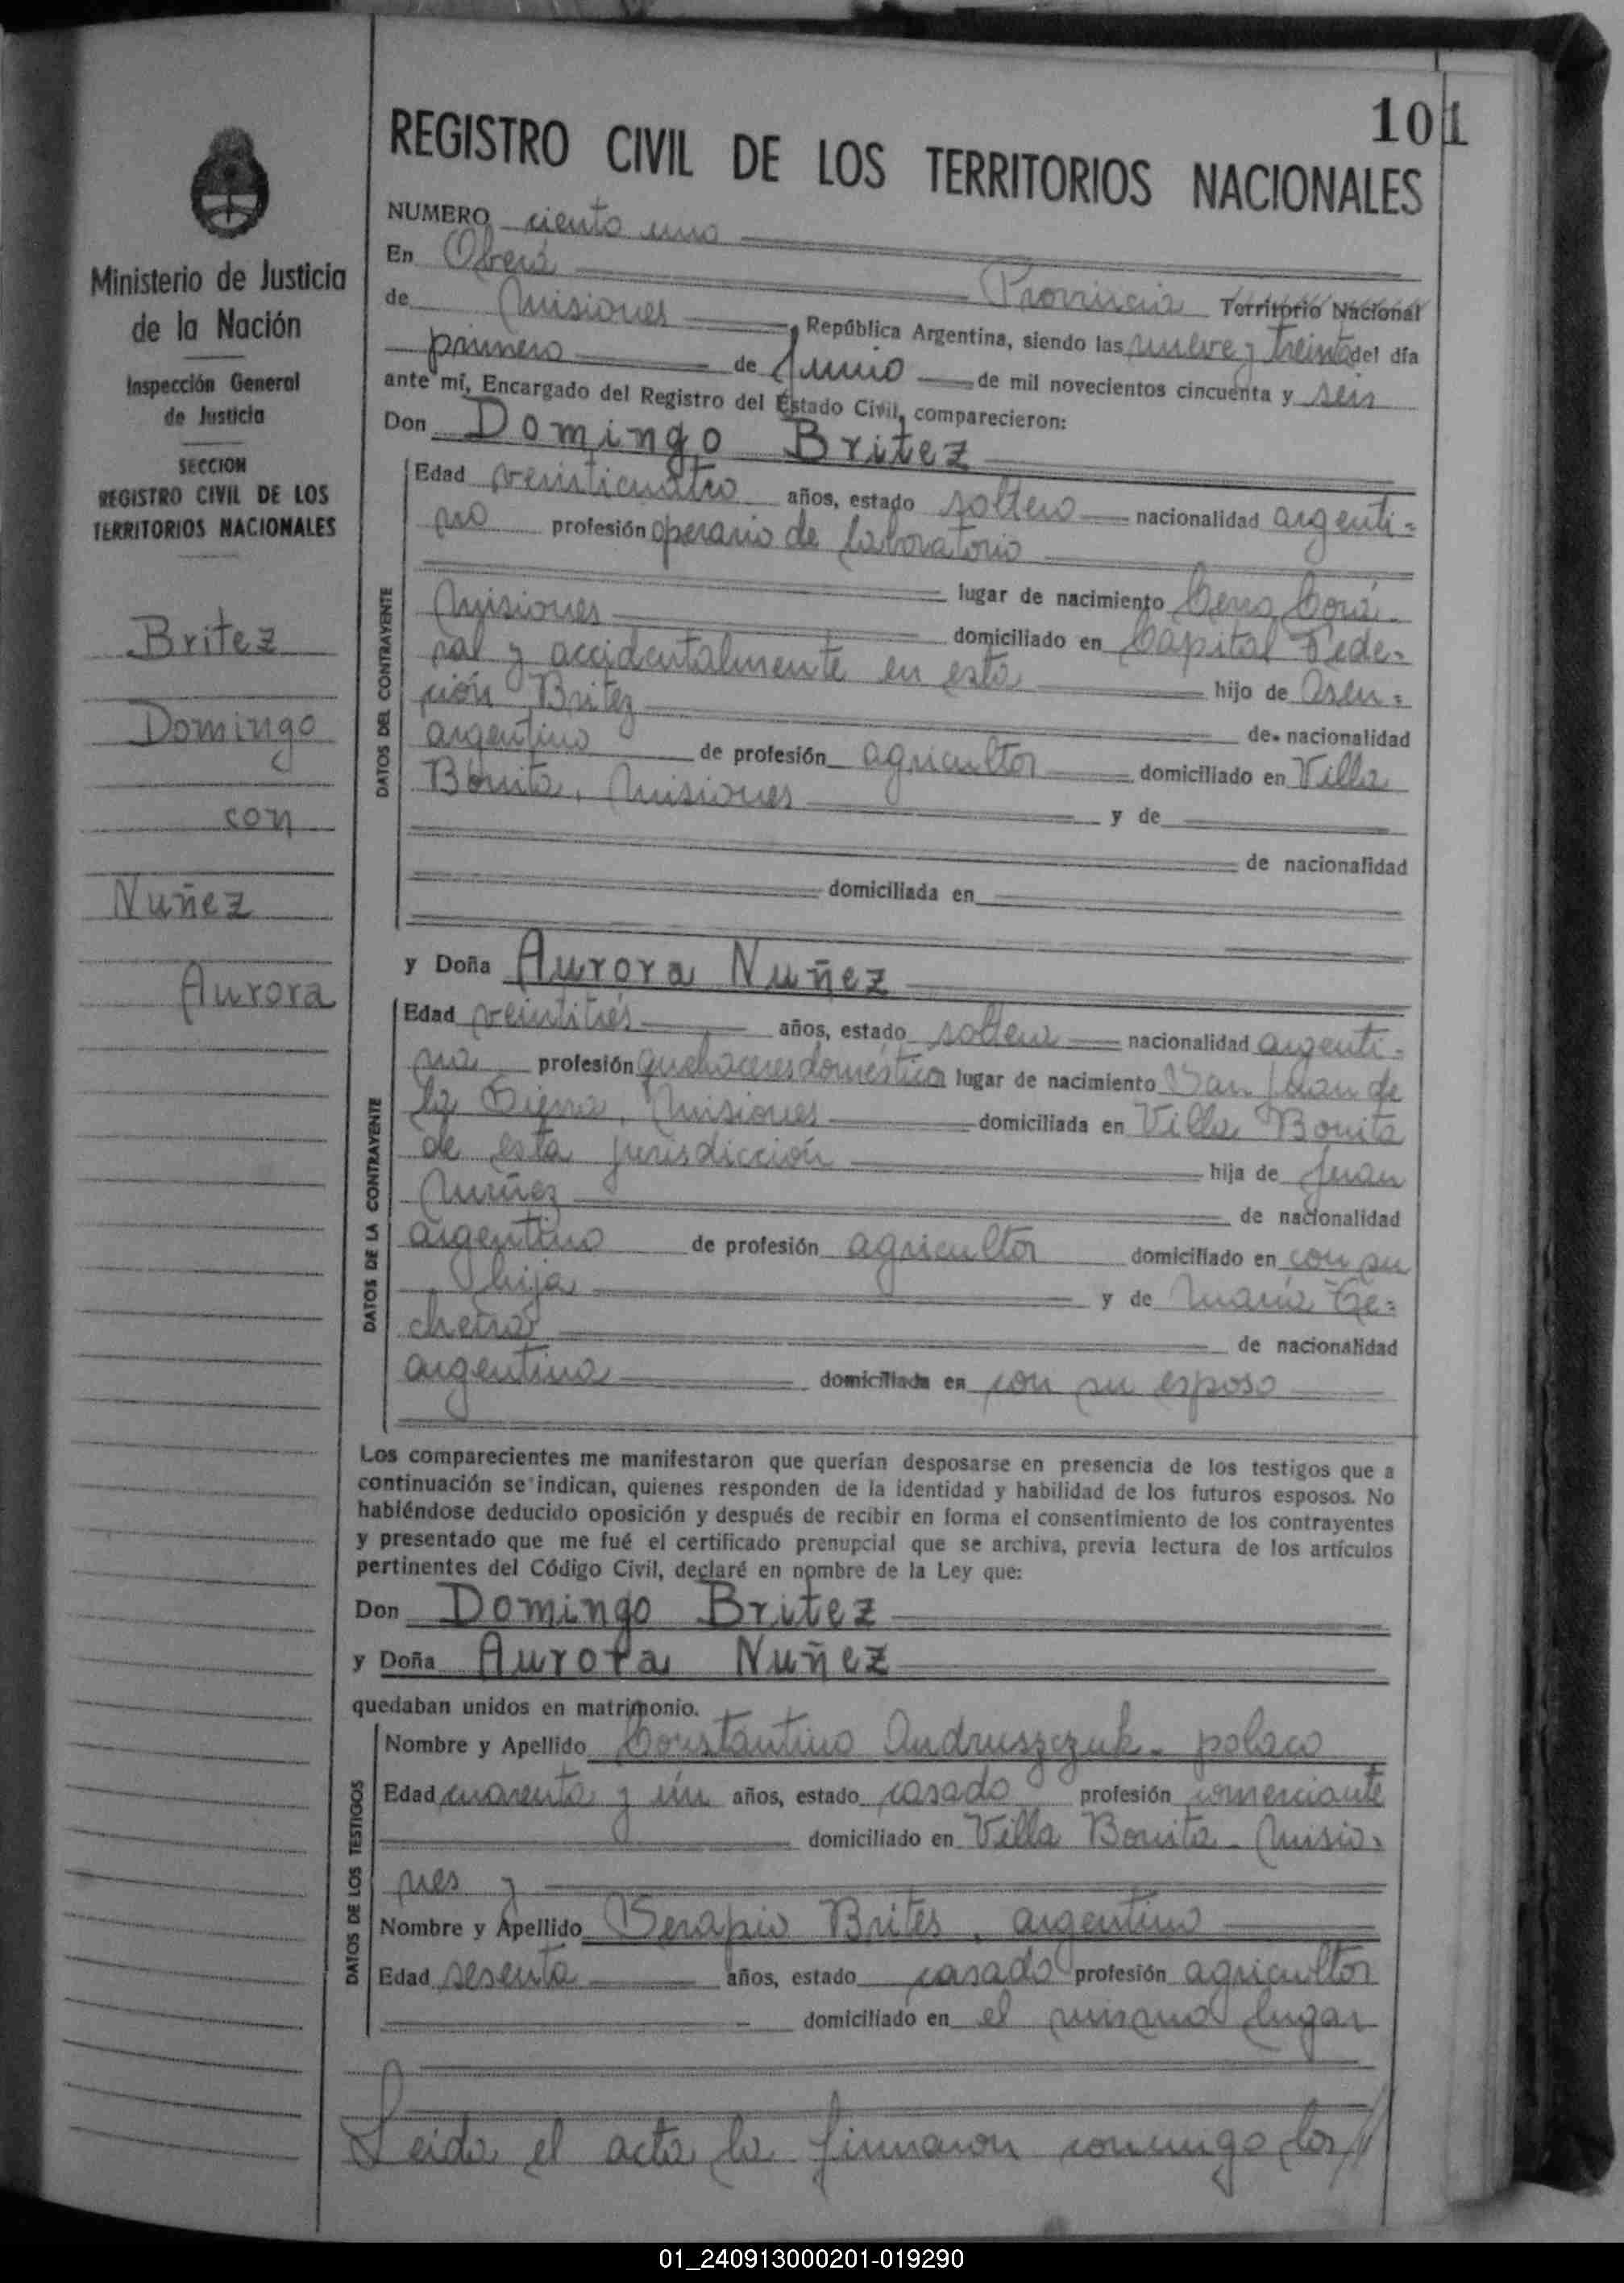 101
REGISTRO CIVIL DE LOS TERRITORIOS NACIONALES
Ministerio de Justicia
de la Nación
Inspección General
de Justicia
SECCION
REGISTRO CIVIL DE LOS
TERRITORIOS NACIONALES
Britez
Domingo
con
Nuñez
Aurora
NUMERO ciento uno
En Oberá
Provincia Territorio Nacional
de Misiones, República Argentina, siendo las nueve y treinta del día
primero de Junio de mil novecientos cincuenta y seis
ante mí, Encargado del Registro del Estado Civil, comparecieron:
Don Domingo Britez
DATOS DEL CONTRAYENTE
Edad veinticuatro años, estado soltero nacionalidad argenti=
no profesión operario de laboratorio
lugar de nacimiento Cerro Corá
Misiones domiciliado en Capital Fede=
ral y accidentalmente en esta hijo de Asen=
ción Britez de nacionalidad
argentino de profesión agricultor domiciliado en Villa
Bonita, Misiones y de
de nacionalidad
domiciliada en
y Doña Aurora Nuñez
DATOS DE LA CONTRAYENTE
Edad veintitrés años, estado soltera nacionalidad argenti=
na profesión quehaceres domésticos lugar de nacimiento San Juan de
la Sierra, Misiones domiciliada en Villa Bonita
de esta jurisdicción hija de Juan
Nuñez de nacionalidad
argentino de profesión agricultor domiciliado en con su
hija y de María
de nacionalidad
argentina domiciliada en con su esposo
Los comparecientes me manifestaron que querían desposarse en presencia de los testigos que a
continuación se indican, quienes responden de la identidad y habilidad de los futuros esposos. No
habiéndose deducido oposición y después de recibir en forma el consentimiento de los contrayentes
y presentado que me fué el certificado prenupcial que se archiva, previa lectura de los artículos
pertinentes del Código Civil, declaré en nombre de la Ley que:
Don Domingo Britez
y Doña Aurora Nuñez
quedaban unidos en matrimonio.
DATOS DE LOS TESTIGOS
Nombre y Apellido Constantino Andruszczuk - polaco
Edad cuarenta y un años, estado casado profesión comerciante
domiciliado en Villa Bonita - Misio=
nes y
Nombre y Apellido Serapio Brites, argentino
Edad sesenta años, estado casado profesión agricultor
domiciliado en el mismo lugar
Leida el acta la firmaron conmigo los//
01_240913000201-019290